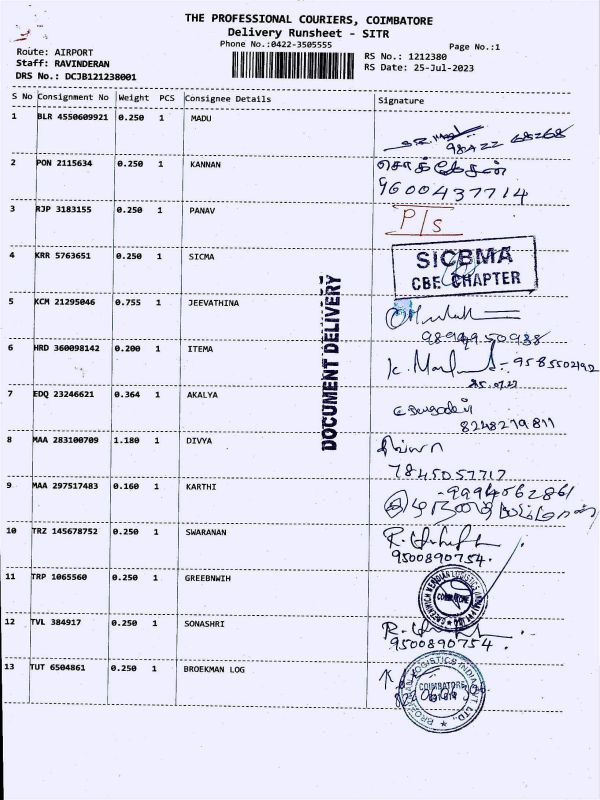 THE PROFESSIONAL COURIERS, COIMBATORE
Delivery Runsheet - SITR
Phone No.:0422-3505555
Page No.:1
Route: AIRPORT
Staff: RAVINDERAN
DRS No.: DCJB121238001
RS No.: 1212380
RS Date: 25-Jul-2023
S No Consignment No Weight PCS Consignee Details Signature
1 BLR 4550609921 0.250 1 MADU
98422 68268
2 PON 2115634 0.250 1 KANNAN
9600437714
3 RJP 3183155 0.250 1 PANAV P/s
4 KRR 5763651 0.250 1 SICMA
SICBMA
CBE CHAPTER
DOCUMENT DELIVERY
5 KCM 21295046 0.755 1 JEEVATHINA
6 HRD 360098142 0.200 1 ITEMA
25.07.23
7 EDQ 23246621 0.364 1 AKALYA
8248219811
8 MAA 283100709 1.180 1 DIVYA
திவ்யா
7845057717
9 MAA 297517483 0.160 1 KARTHI
9994562861
10 TRZ 145678752 0.250 1 SWARANAN
9500890754.
11 TRP 1065560 0.250 1 GREEBNWIH
COIMBATORE
12 TVL 384917 0.250 1 SONASHRI
9500890754.
13 TUT 6504861 0.250 1 BROEKMAN LOG
COIMBATORE